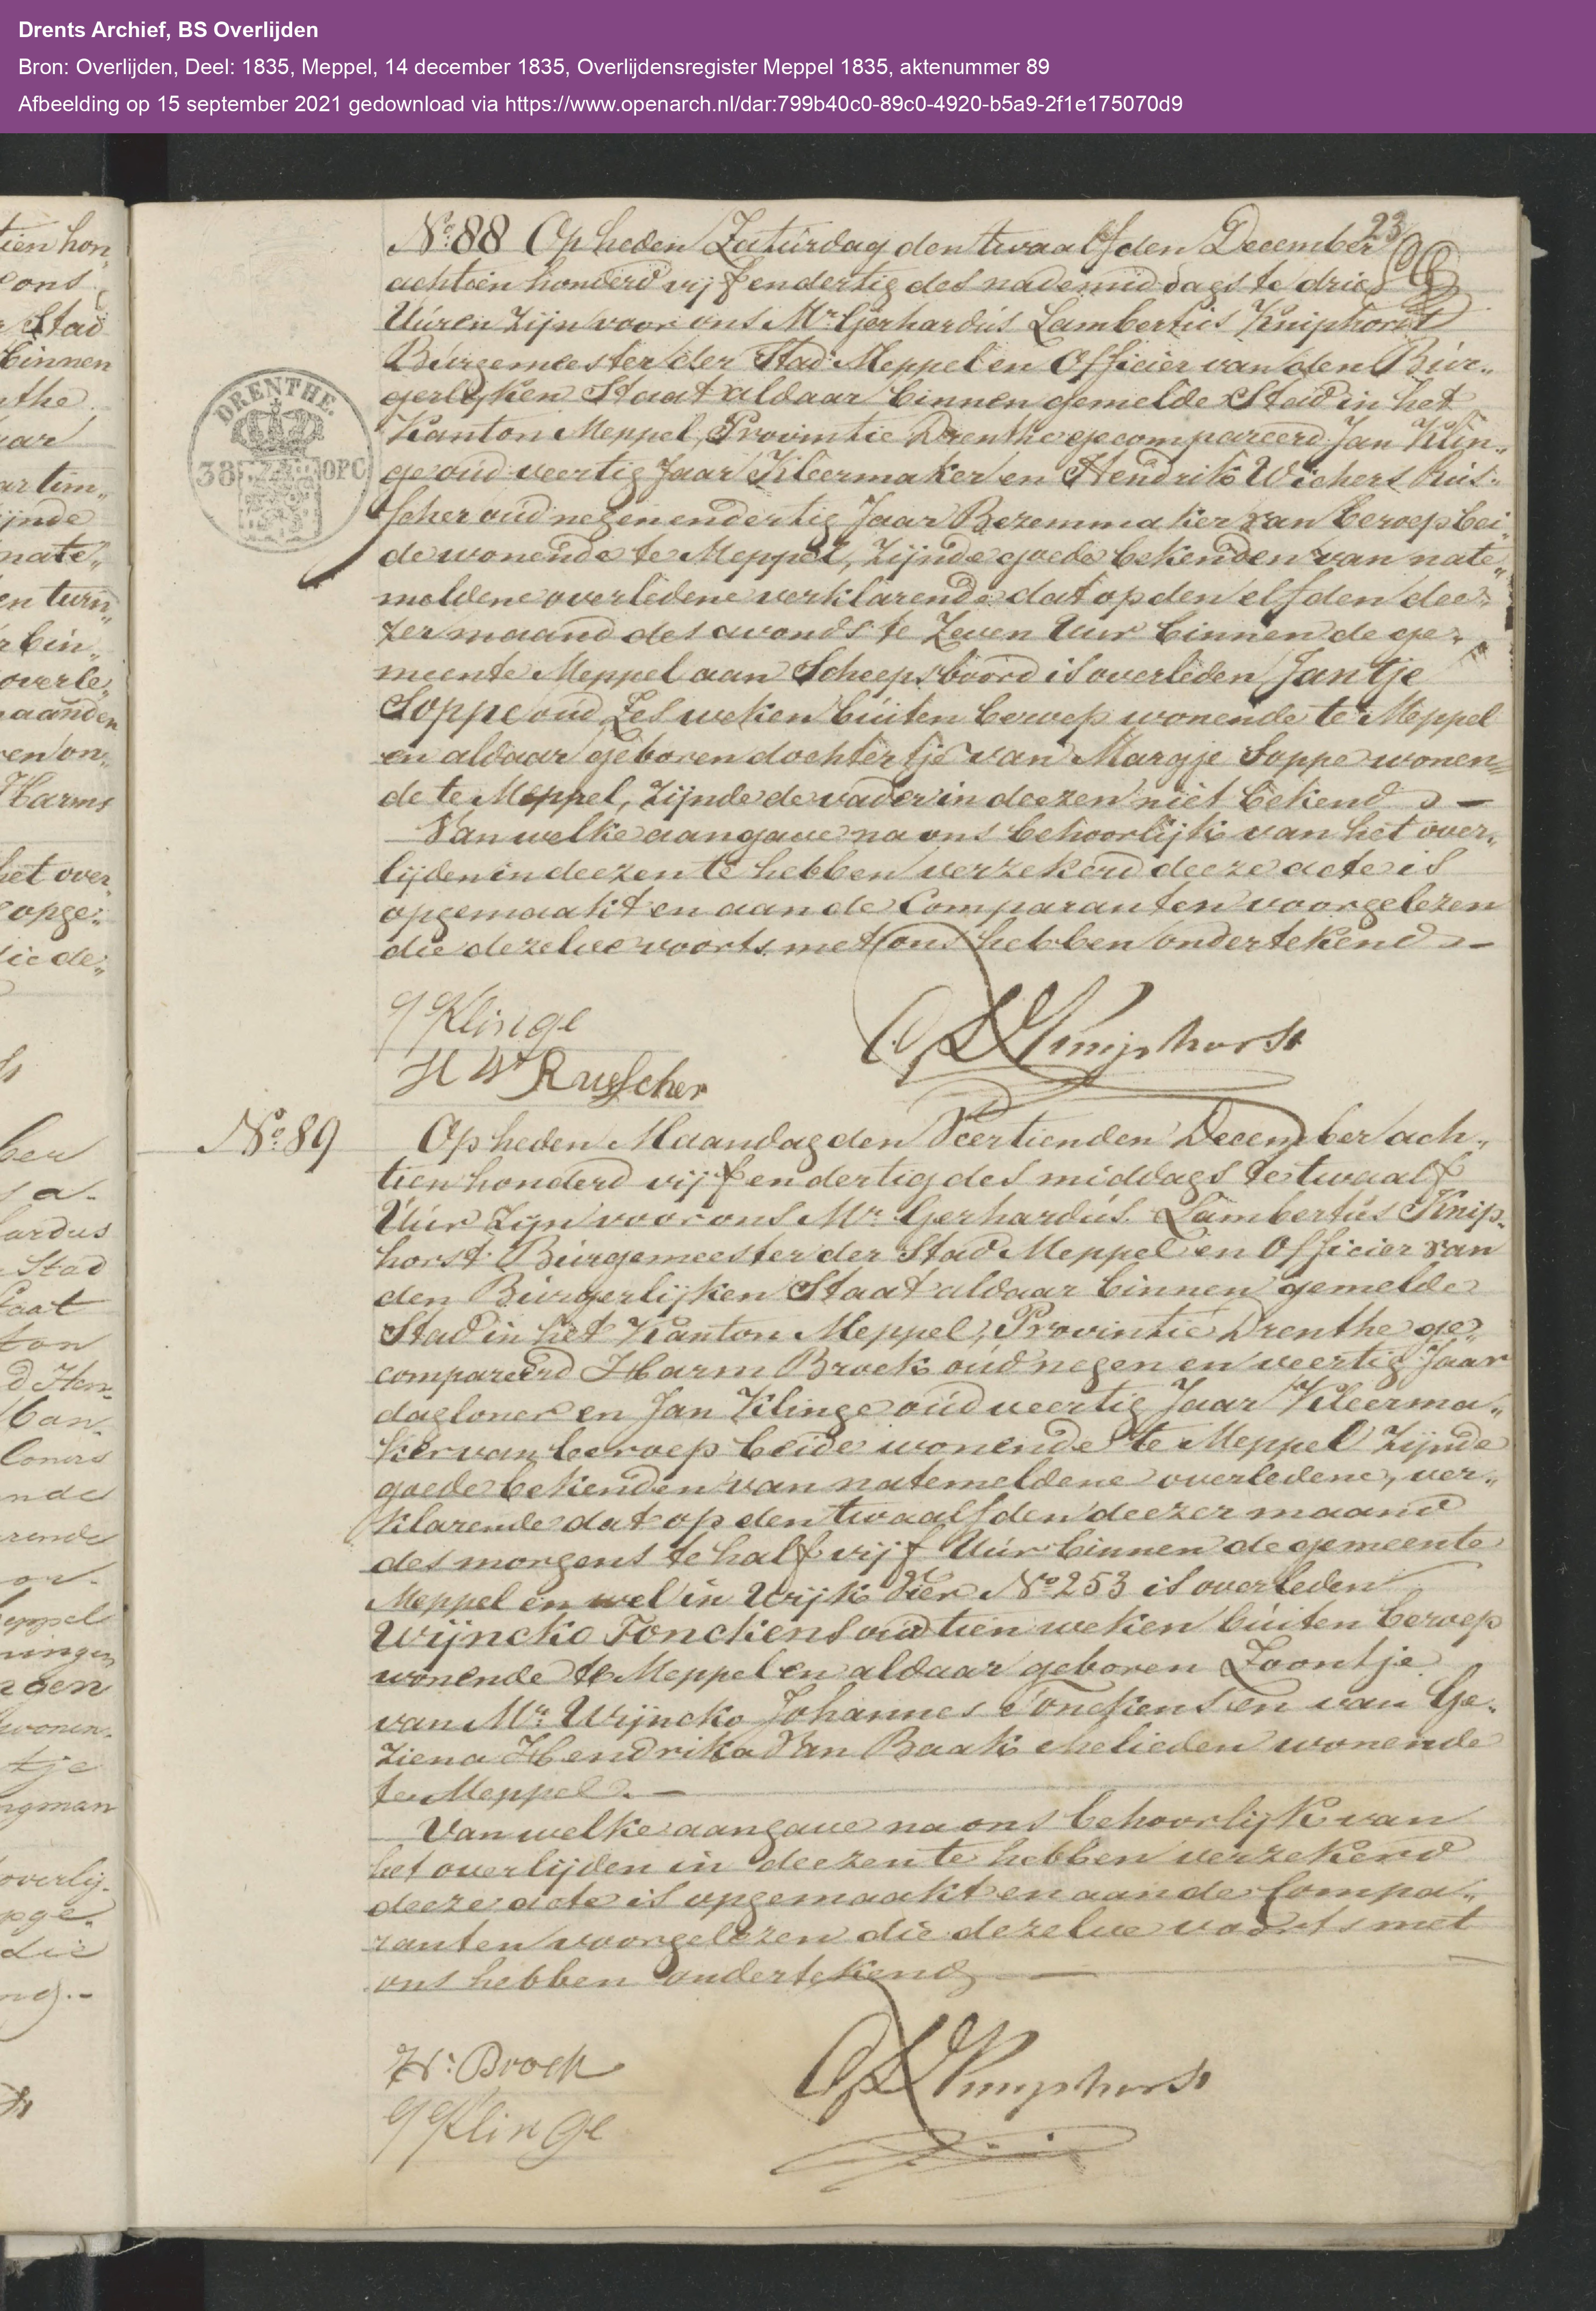 Drents Archief, BS Overlijden
Bron: Overlijden, Deel: 1835, Meppel, 14 december 1835, Overlijdensregister Meppel 1835, aktenummer 89
Afbeelding op 15 september 2021 gedownload via https://www.openarch.nl/dar:799b40c0-89c0-4920-b5a9-2f1e175070d9
tien hon
ons
Stad
binnen
nthe
aar
ar tim„
ijnde
nate„
en turn„
bin„
overle„
aanden
en on„
Harms
het over„
opge„
ie de„
ber
a.
ardus
Stad
taat
ton
d Hen„
ban„
loners
nde
rende
or.
eppel
ningen
gen
wonen.
tje
ngman
overlij.
opge.
die
ng).-
23
DRENTHE.
38 OPC
No. 88 Op heden Zaturdag den twaalfden December
achttien honderd vijf en dertig des nademiddags te drie
Uuren zijn voor ons Mr. Gerhardus Lambertus Kniphorst
Burgemeester der Stad Meppel en Officier van den Bur„
gerlyken Staat aldaar binnen gemelde Stad in het
Kanton Meppel, Provintie Drenthe gecompareerd Jan Klin„
ge oud veertig Jaar Kleermaker en Hendrik Wichers Rus„
scher oud negenendertig Jaar Bezemmaker van beroep bei„
de wonende te Meppel, zijnde goede bekenden van nate„
meldene overledene verklarende dat op den elfden dee„
zer maand des avonds te Zeven Uur binnen de ge„
meente Meppel aan Scheepsboord is overleden Jantje
Soppe oud Zes weken buiten beroep wonende te Meppel
en aldaar geboren dochtertje van Margje Soppe wonen„
de te Meppel, zijnde de vader in deezen niet bekend —
Van welke aangave na ons behoorlijk van het over„
lijden in deezen te hebben verzekerd deeze acte is
opgemaakt en aan de Comparanten voorgelezen
die dezelve voorts met ons hebben ondertekend —
J Klinge
G L Kniphorst
H W Russcher
No. 89
Op heden Maandag den Veertienden December ach„
tien honderd vijf en dertig des middags te twaalf
Uur zijn voor ons Mr. Gerhardus Lambertus Knip„
horst Burgemeester der Stad Meppel en Officier van
den Burgerlijken Staat aldaar binnen gemelde
Stad in het Kanton Meppel, Provintie Drenthe ge„
compareerd Harm Broek oud negen en veertig Jaar
dagloner en Jan Klinge oud veertig Jaar Kleerma„
ker van beroep beide wonende te Meppel zijnde
goede bekenden van natemeldene overledene, ver„
klarende dat op den twaalfden deezer maand
des morgens te half vijf Uur binnen de gemeente
Meppel en wel in Wijk vier No 253 is overleden
Wijncko Tonckens oud tien weken buiten beroep
wonende te Meppel en aldaar geboren Zoontje
van Mr. Wijncko Johannes Tonckens en van Ge„
ziena Hendrika Van Baak ehelieden wonende
te Meppel. —
Van welke aangave na ons behoorlijk van
het overlijden in deezen te hebben verzekerd
deeze acte is opgemaakt en aan de Compa„
ranten voorgelezen die dezelve voorts met
ons hebben ondertekend —
H. Broek
G L Kniphorst
J Klinge